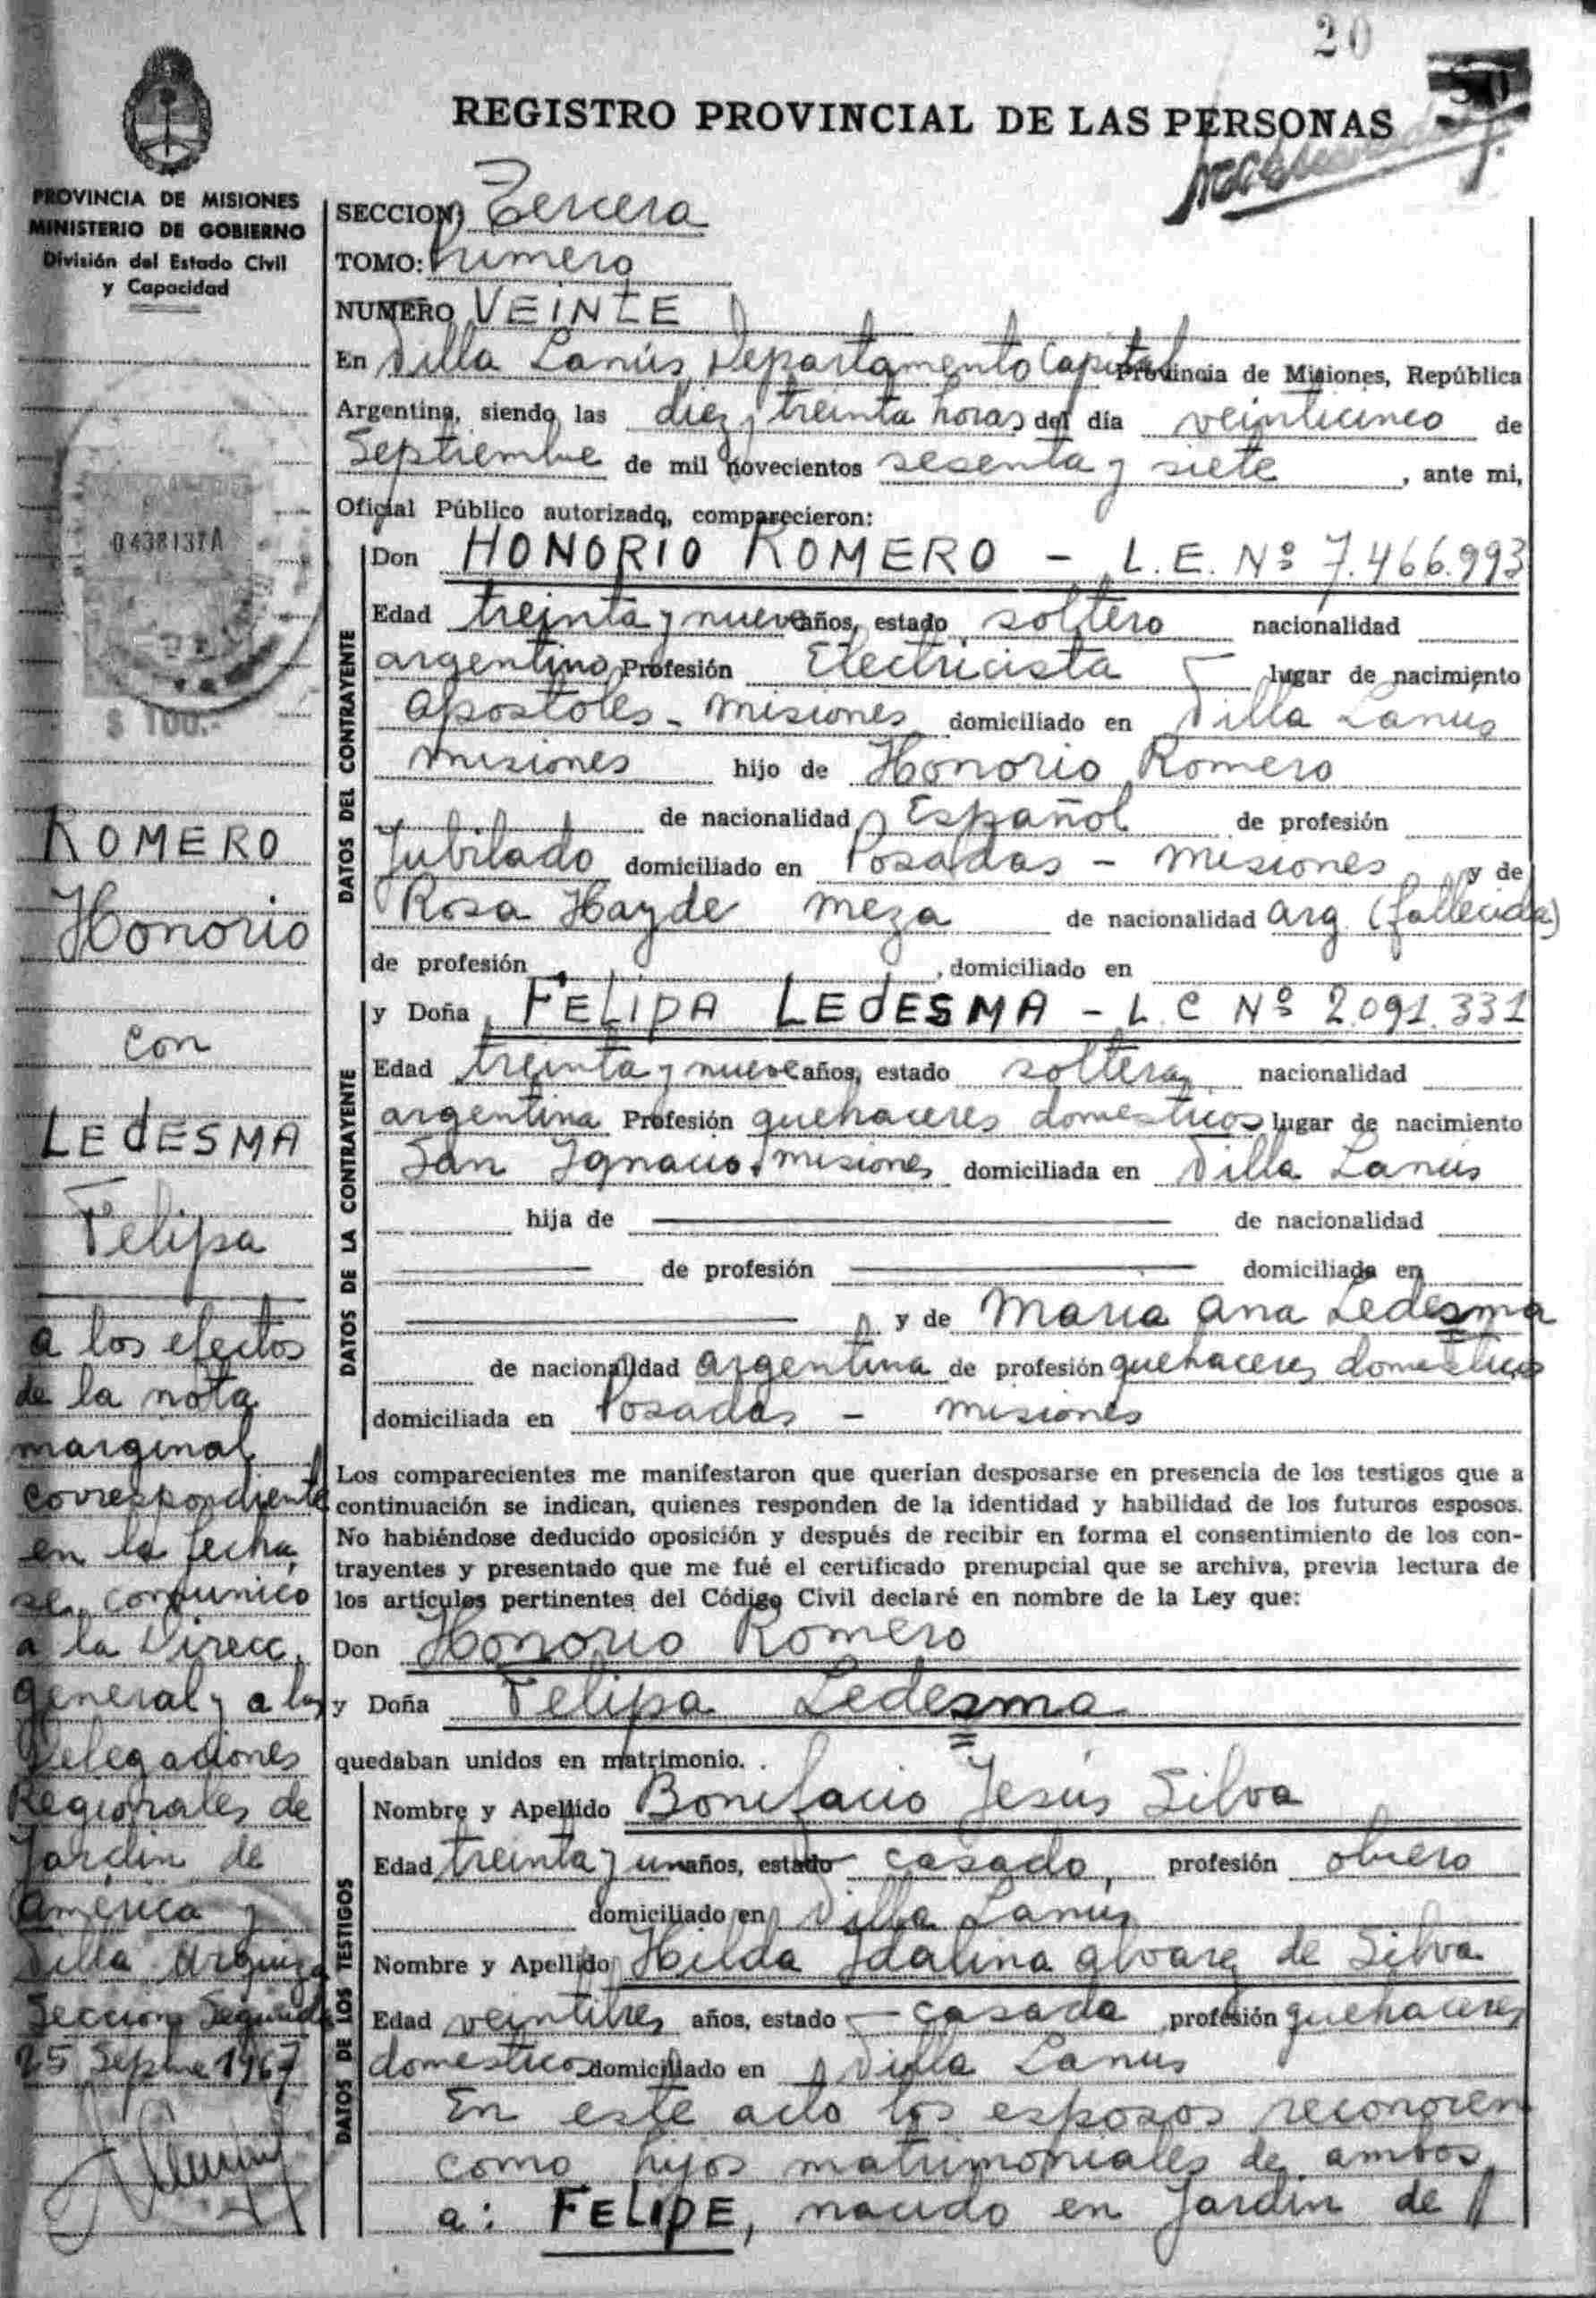 20
50
REGISTRO PROVINCIAL DE LAS PERSONAS
PROVINCIA DE MISIONES
MINISTERIO DE GOBIERNO
División del Estado Civil
y Capacidad
0438137A
$ 100.-
ROMERO
Honorio
con
LEdESMA
Felipa
a los efectos
de la nota
marginal
correspondiente
en la fecha,
se comunico
a la Direcc.
general y a las
Delegaciones
Regionales de
Jardin de
América y
Villa Urquiza
Seccion Segunda
25 Sepbre 1967
SECCION) Tercera
TOMO: Primero
NUMERO VEINTE
En Villa Lanús, Departamento Capital Provincia de Misiones, República
Argentina, siendo las diez y treinta horas del día veinticinco de
Septiembre de mil novecientos sesenta y siete, ante mi,
Oficial Público autorizado, comparecieron:
DATOS DEL CONTRAYENTE
Don HONORIO ROMERO - L.E. Nº 7.466.993
Edad treinta y nueve años, estado soltero nacionalidad
argentino Profesión Electricista lugar de nacimiento
Apostoles - Misiones domiciliado en Villa Lanus
Misiones hijo de Honorio Romero
de nacionalidad Español de profesión
Jubilado domiciliado en Posadas - Misiones y de
Rosa Hayde Meza de nacionalidad Arg. (fallecida)
de profesión , domiciliado en
DATOS DE LA CONTRAYENTE
y Doña FELIPA LEdESMA - L.C Nº 2.091.331
Edad treinta y nueve años, estado soltera nacionalidad
argentina Profesión quehaceres domesticos lugar de nacimiento
San Ignacio. Misiones domiciliada en Villa Lanús
hija de de nacionalidad
de profesión domiciliada en
y de Maria Ana Ledesma
de nacionalidad argentina de profesión quehaceres domesticos
domiciliada en Posadas - Misiones
Los comparecientes me manifestaron que querían desposarse en presencia de los testigos que a
continuación se indican, quienes responden de la identidad y habilidad de los futuros esposos.
No habiéndose deducido oposición y después de recibir en forma el consentimiento de los con-
trayentes y presentado que me fué el certificado prenupcial que se archiva, previa lectura de
los artículos pertinentes del Código Civil declaré en nombre de la Ley que:
Don Honorio Romero
y Doña Felipa Ledesma
quedaban unidos en matrimonio. .
DATOS DE LOS TESTIGOS
Nombre y Apellido Bonifacio Jesús Silva
Edad treinta y un años, estado casado, profesión obrero
domiciliado en Villa Lanus
Nombre y Apellido Hilda Idalina Alvarez de Silva
Edad veintitres años, estado - casada profesión quehaceres
domesticos domiciliado en Villa Lanus
En este acto los esposos reconocen
como hijos matrimoniales de ambos
a: FELIPE, nacido en Jardin de